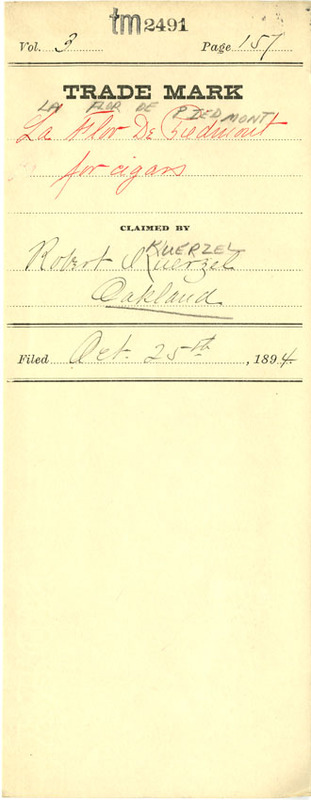 tm 2491
Vol. 3 Page 157
TRADE MARK
LA FLOR DE PIEDMONT
La Flor De Piedmont
for cigars
CLAIMED BY
KUERZEL
Robert Kuerzel
Oakland
Filed Oct. 25th, 1894.